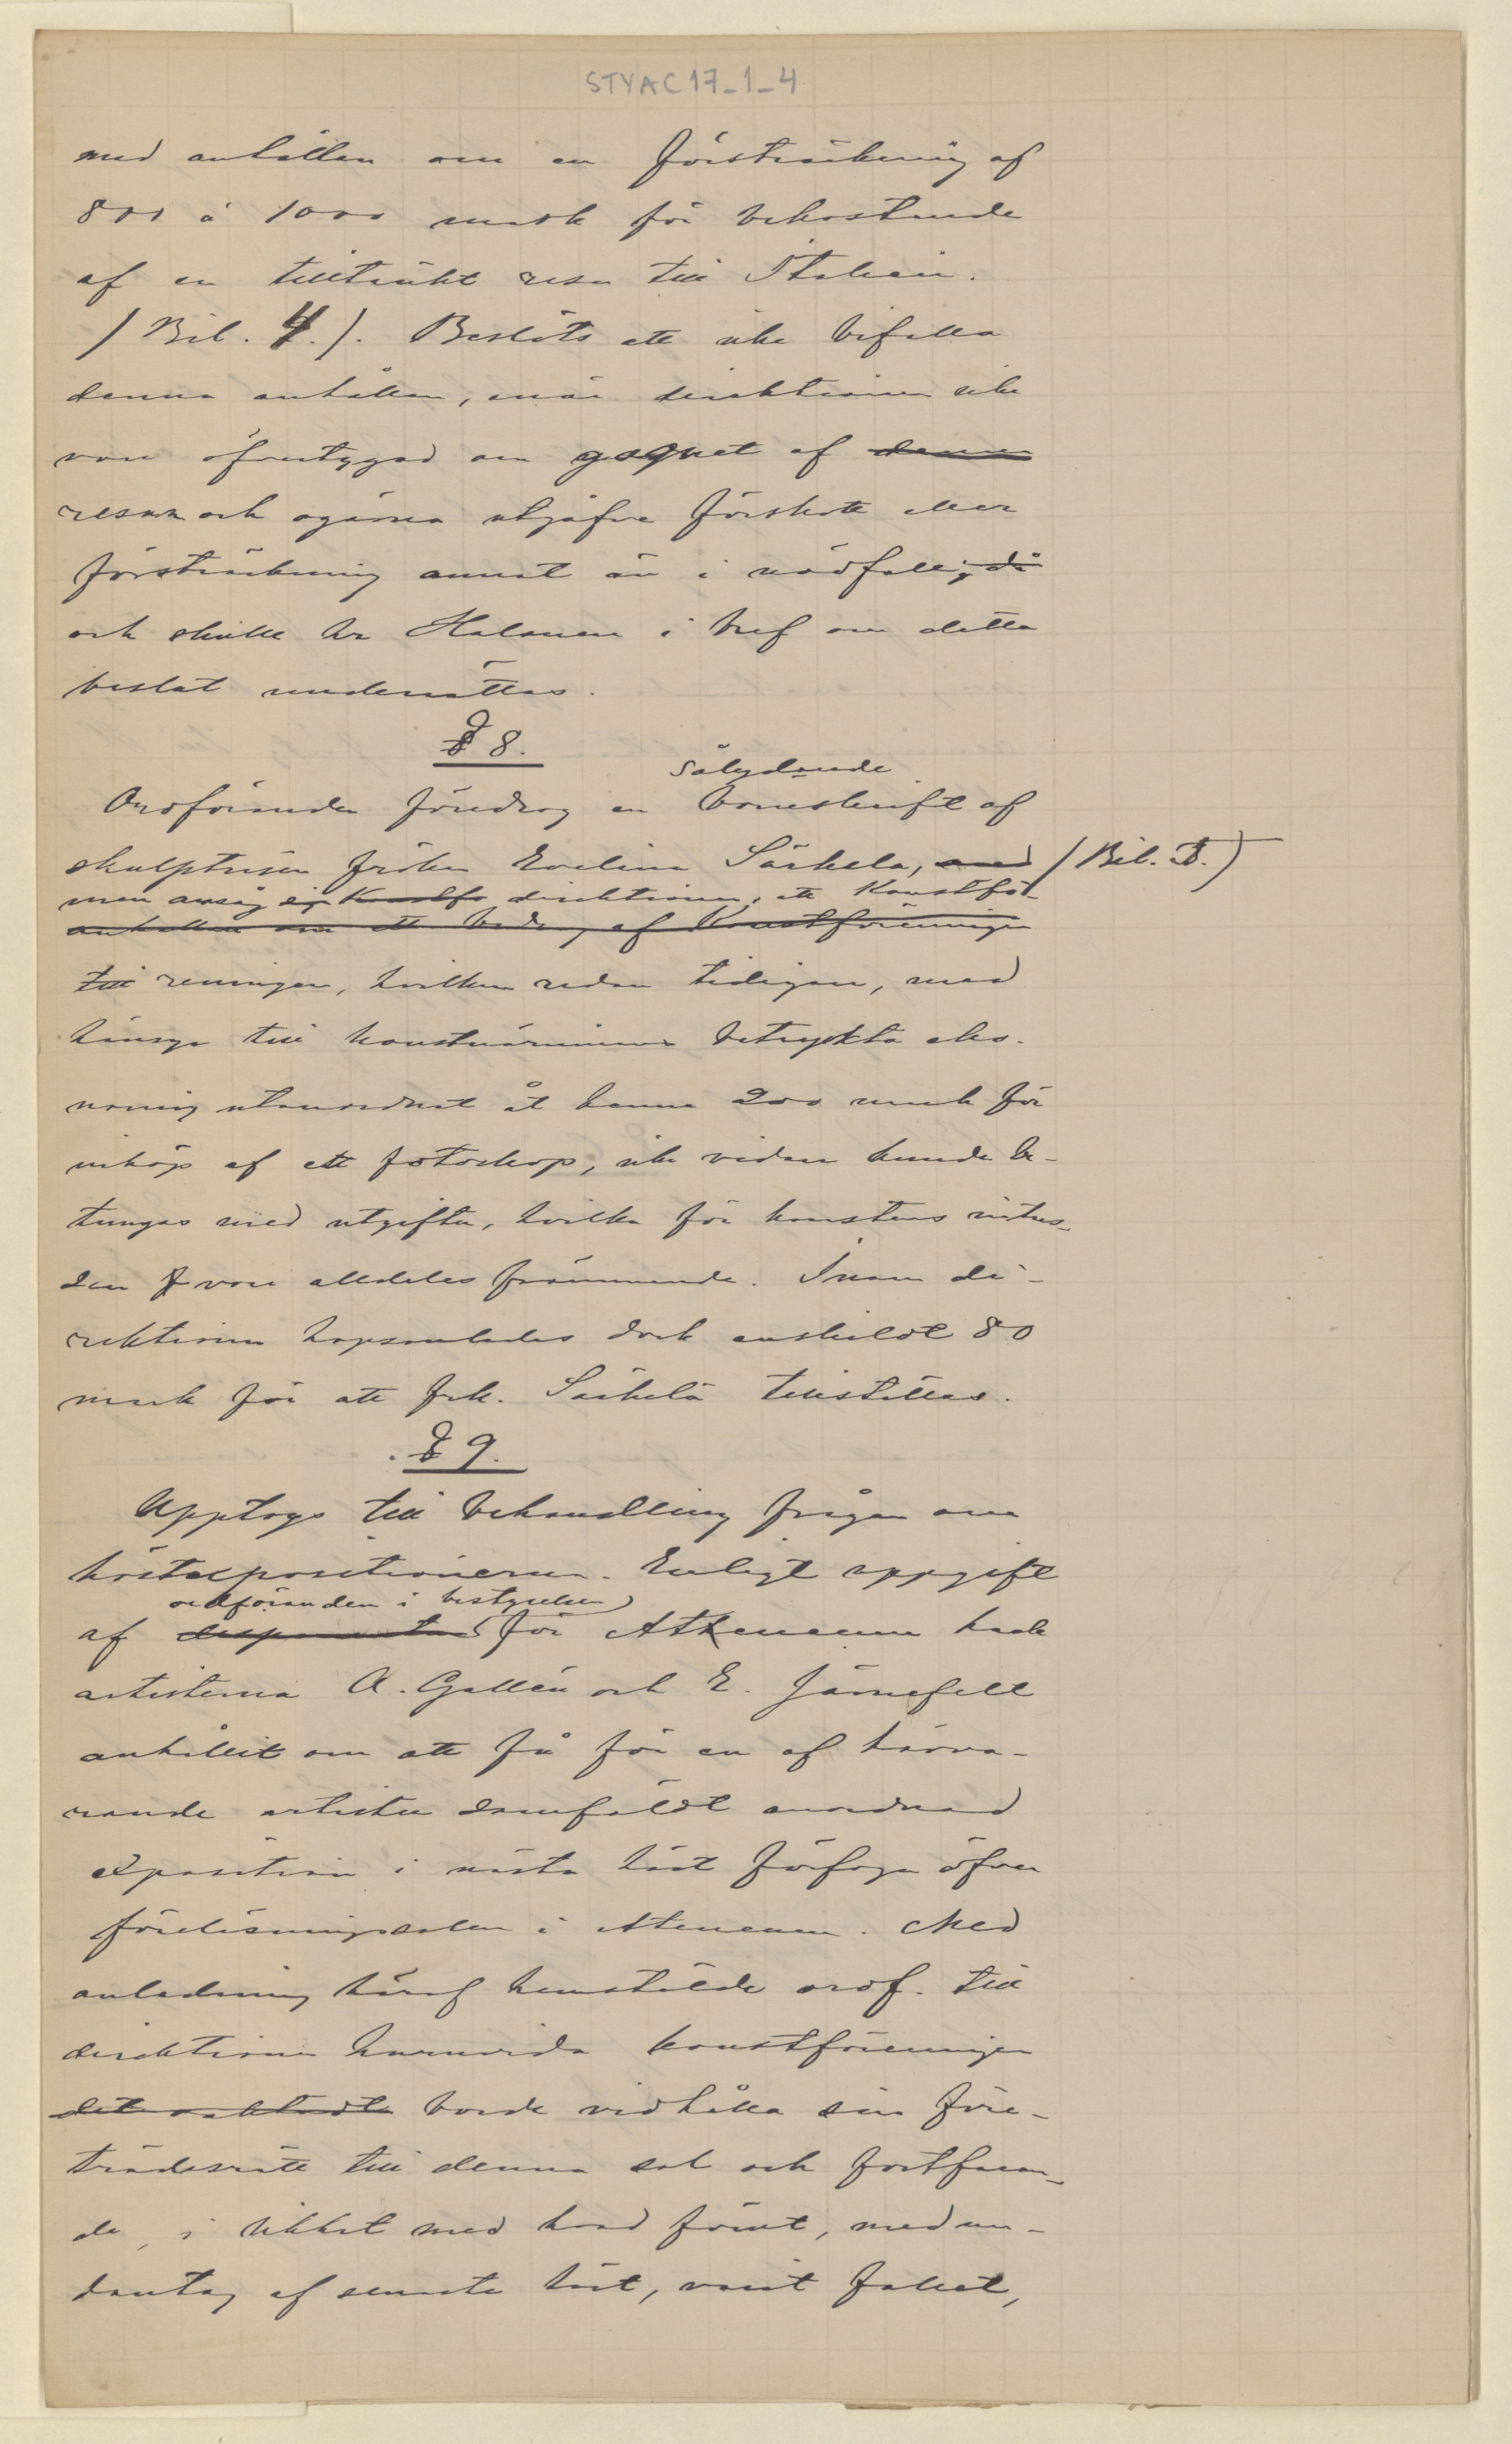 STYAC17-1-4
med anhållan om en försträckning af
800 à 1000 mark för bekostande
af en tilltänkt resa till Italien.
(Bil. 4.). Beslöts att icke bifalla
denna anhållan, enär direktionen icke
vore öfvertygad om gagnet af denna
resan och ogärna utgåfve förskott eller
försträckning annat än i nödfall, då
och skulle hr Halonen i bref om detta
beslut underrättas.
§ 8.
sålydande
Ordföranden föredrog en böneskrift af
skulptrisen fröken Evelina Särkelä, med (Bil. 5.)
men ansåg sig Konstfö direktionen, att Konstfö-
anhållan om ett bidrag af Konstföreningen
till reningen, hvilken redan tidigare, med
hänsyn till konstnärinnans betryckta eko-
nomi utanordnat åt henne 200 mark för
inköp af ett fotoskop, icke vidare kunde be-
tungas med utgifter, hvilka för konstens intres-
sen f vore alldeles främmande. Inom di-
rektionen hopsamlades dock enskildt 80
mark för att frk. Särkelä tillställas.
§ 9.
Upptogs till behandling frågan om
höstexpositionerna. Enligt uppgift
ordföranden i bestyrelsen
af disponenten för Atheneum hade
artisterna A. Gallén och E. Järnefelt
anhållit om att få för en af härva-
rande artister samfäldt anordnad
exposition i nästa höst förfoga öfver
föreläsningssalen i Ateneum. Med
anledning häraf hemstälde ordf. till
direktionen huruvida konstföreningen
det oaktadt borde vidhålla sin före-
trädesrätt till denna sal och fortfaran-
de, i likhet med hvad förut, med un-
dantag af senaste höst, varit fallet,